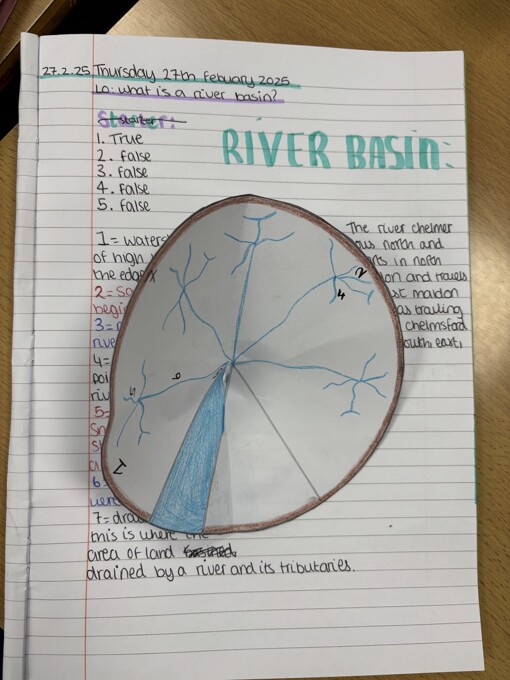 27.2.25 Thursday 27th Febuary 2025
LO: what is a river basin?
Starter:
RIVER BASIN:
1. True
2. False
3. False
4. False
5. False
1 = waters
of high
the edge
2 = So
begin
3 =
rive
4 =
poi
riv
5 =
Sn
6
were
7 = dra
this is where the
area of land
drained by a river and its tributaries.
The river chelmer
ows north and
ts in north
on and travels
st maldon
as trailing
chelmsford
outh east.
2
4
5
6
1